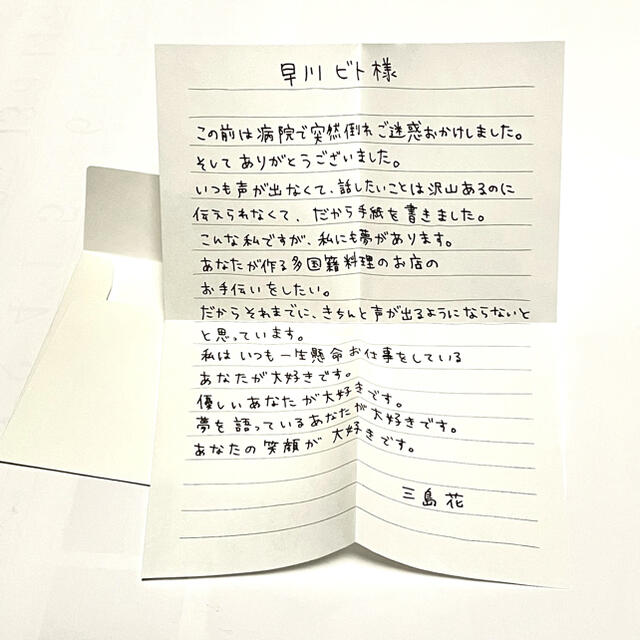 早川 ビト様
この前は病院で突然倒れご迷惑おかけしました。
そして ありがとうございました。
いつも声が出なくて、話したいことは沢山あるのに
伝えられなくて、だから手紙を書きました。
こんな私ですが、私にも夢があります。
あなたが作る多国籍料理のお店の
お手伝いをしたい。
だからそれまでに、きちんと声が出るようにならないと
と思っています。
私は いつも一生懸命お仕事をしている
あなたが大好きです。
優しいあなたが大好きです。
夢を語っているあなたが大好きです。
あなたの笑顔が 大好きです。
三島 花